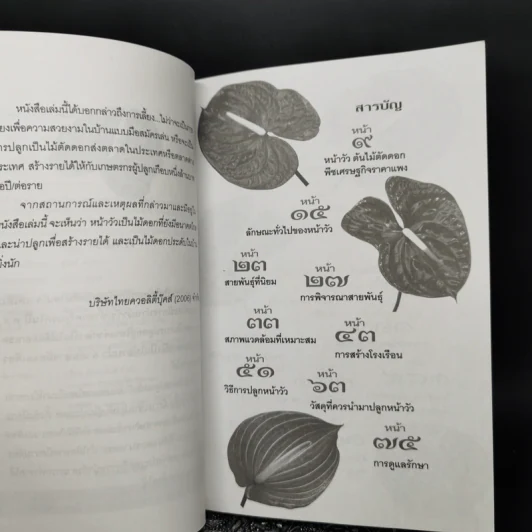 หนังสือเล่มนี้ได้บอกกล่าวถึงการเลี้ยง...ไม่ว่าจะเป็น
เพื่อความสวยงามในบ้านแบบมือสมัครเล่น หรือจะเป็น
การปลูกเป็นไม้ตัดดอกส่งตลาดในประเทศหรือตลาดต่าง
ประเทศ สร้างรายได้ให้กับเกษตรกรผู้ปลูกเกือบหนึ่งล้าน
ต่อปี/ต่อราย
จากสถานการณ์และเหตุผลที่กล่าวมาและมีอยู่ใน
หนังสือเล่มนี้ จะเห็นว่า หน้าวัวเป็นไม้ดอกที่ยังมีอนาคต
และน่าปลูกเพื่อสร้างรายได้ และเป็นไม้ดอกประดับ
ยิ่งนัก
บริษัทไทยควอลิตี้บุ๊คส์ (2006)
สารบัญ
หน้า
๙
หน้าวัว ต้นไม้ตัดดอก
พืชเศรษฐกิจราคาแพง
หน้า
๑๕
ลักษณะทั่วไปของหน้าวัว
หน้า
๒๓
สายพันธุ์ที่นิยม
หน้า
๒๗
การพิจารณาสายพันธุ์
หน้า
๓๓
สภาพแวดล้อมที่เหมาะสม
หน้า
๔๓
การสร้างโรงเรือน
หน้า
๕๑
วิธีการปลูกหน้าวัว
หน้า
๖๓
วัสดุที่ควรนำมาปลูกหน้าวัว
หน้า
๗๕
การดูแลรักษา